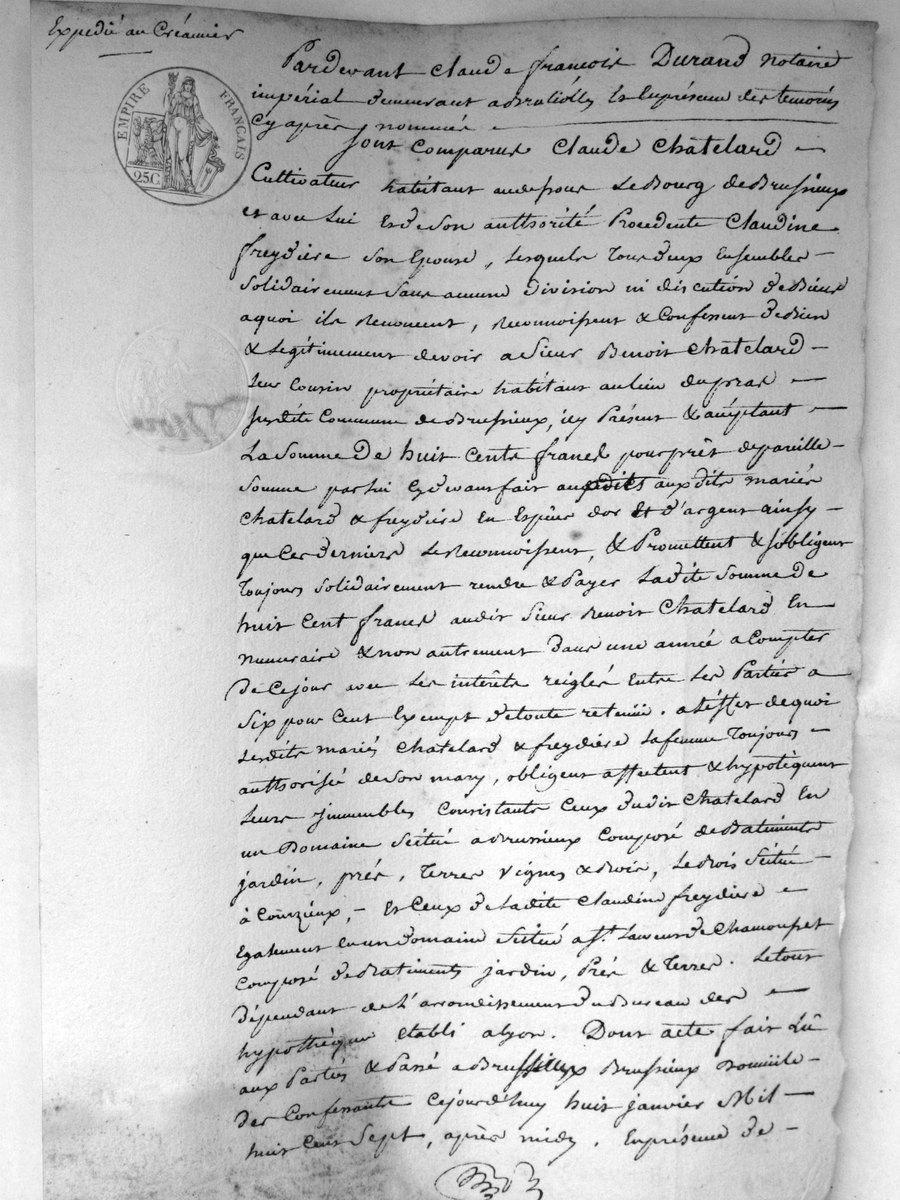 Expedié au Créancier
EMPIRE FRANÇAIS
25C
Pardevant Claude francois Durand Notaire
impérial demeurant a Bratiolly & En présence des temoins
Cy après nommés
Sont Comparus Claude Châtelard
Cultivateur habitant audessous Le Bourg de Brussieux
et avec Lui Et de Son authorité Procedente Claudine
freydiere Son Epouse, Lesquels Tous deux Ensembles
Solidairement Sans aucune division ni discution de Biens
aquoi ils Renoncent, Reconnoissent & Confessent de Bien
& Legitimement devoir a Sieur Benoit Châtelard
Leur Cousin propriétaire habitant au Lieu du pras
Susdite Commune de Brussieux, icy Présent & acceptant
La Somme De huit Cents francs pour prêt de pareille
Somme par lui Cydevant fait aux dits mariés
Chatelard & freydiere En Espèces d'or Et d'argent ainsy
que Ces derniers Le Reconnoissent, & Promettent & S'obligent
Toujours Solidairement rendre & Payer Ladite Somme de
huit Cent francs audit Sieur Benoit Chatelard En
Numeraire & non autrement dans une année a Compter
De Ce jour avec Les interêts reiglés Entre Les Parties a
Six pour Cent Exempt de toute retenüe. a L'Effet de quoi
Lesdits mariés Chatelard & freydiere La femme Toujours
authorisée de Son mary, obligent affectent & hypotèquent
Leurs immeubles Consistants Ceux dudit Chatelard En
un Domaine Scitué a Brussieux Composé de Batiments
jardin, prés, Terres Vignes & Bois, Le Bois Scitué
à Courzieux, Et Ceux de Ladite Claudine freydiere
Egalement En un Domaine Scitué a St. Laurent de Chamousset
Composé de Batiments jardin, Prés & Terres. Le tout
dépendant de L'arrondissement du Bureau des
hypothèques Etabli a Lyon. Dont acte fait Lû
aux Parties & Passé a Brussieux Domicile
des Confessants Cejourd'huy huit janvier Mil
huit Cent Sept, après midy. En présence de